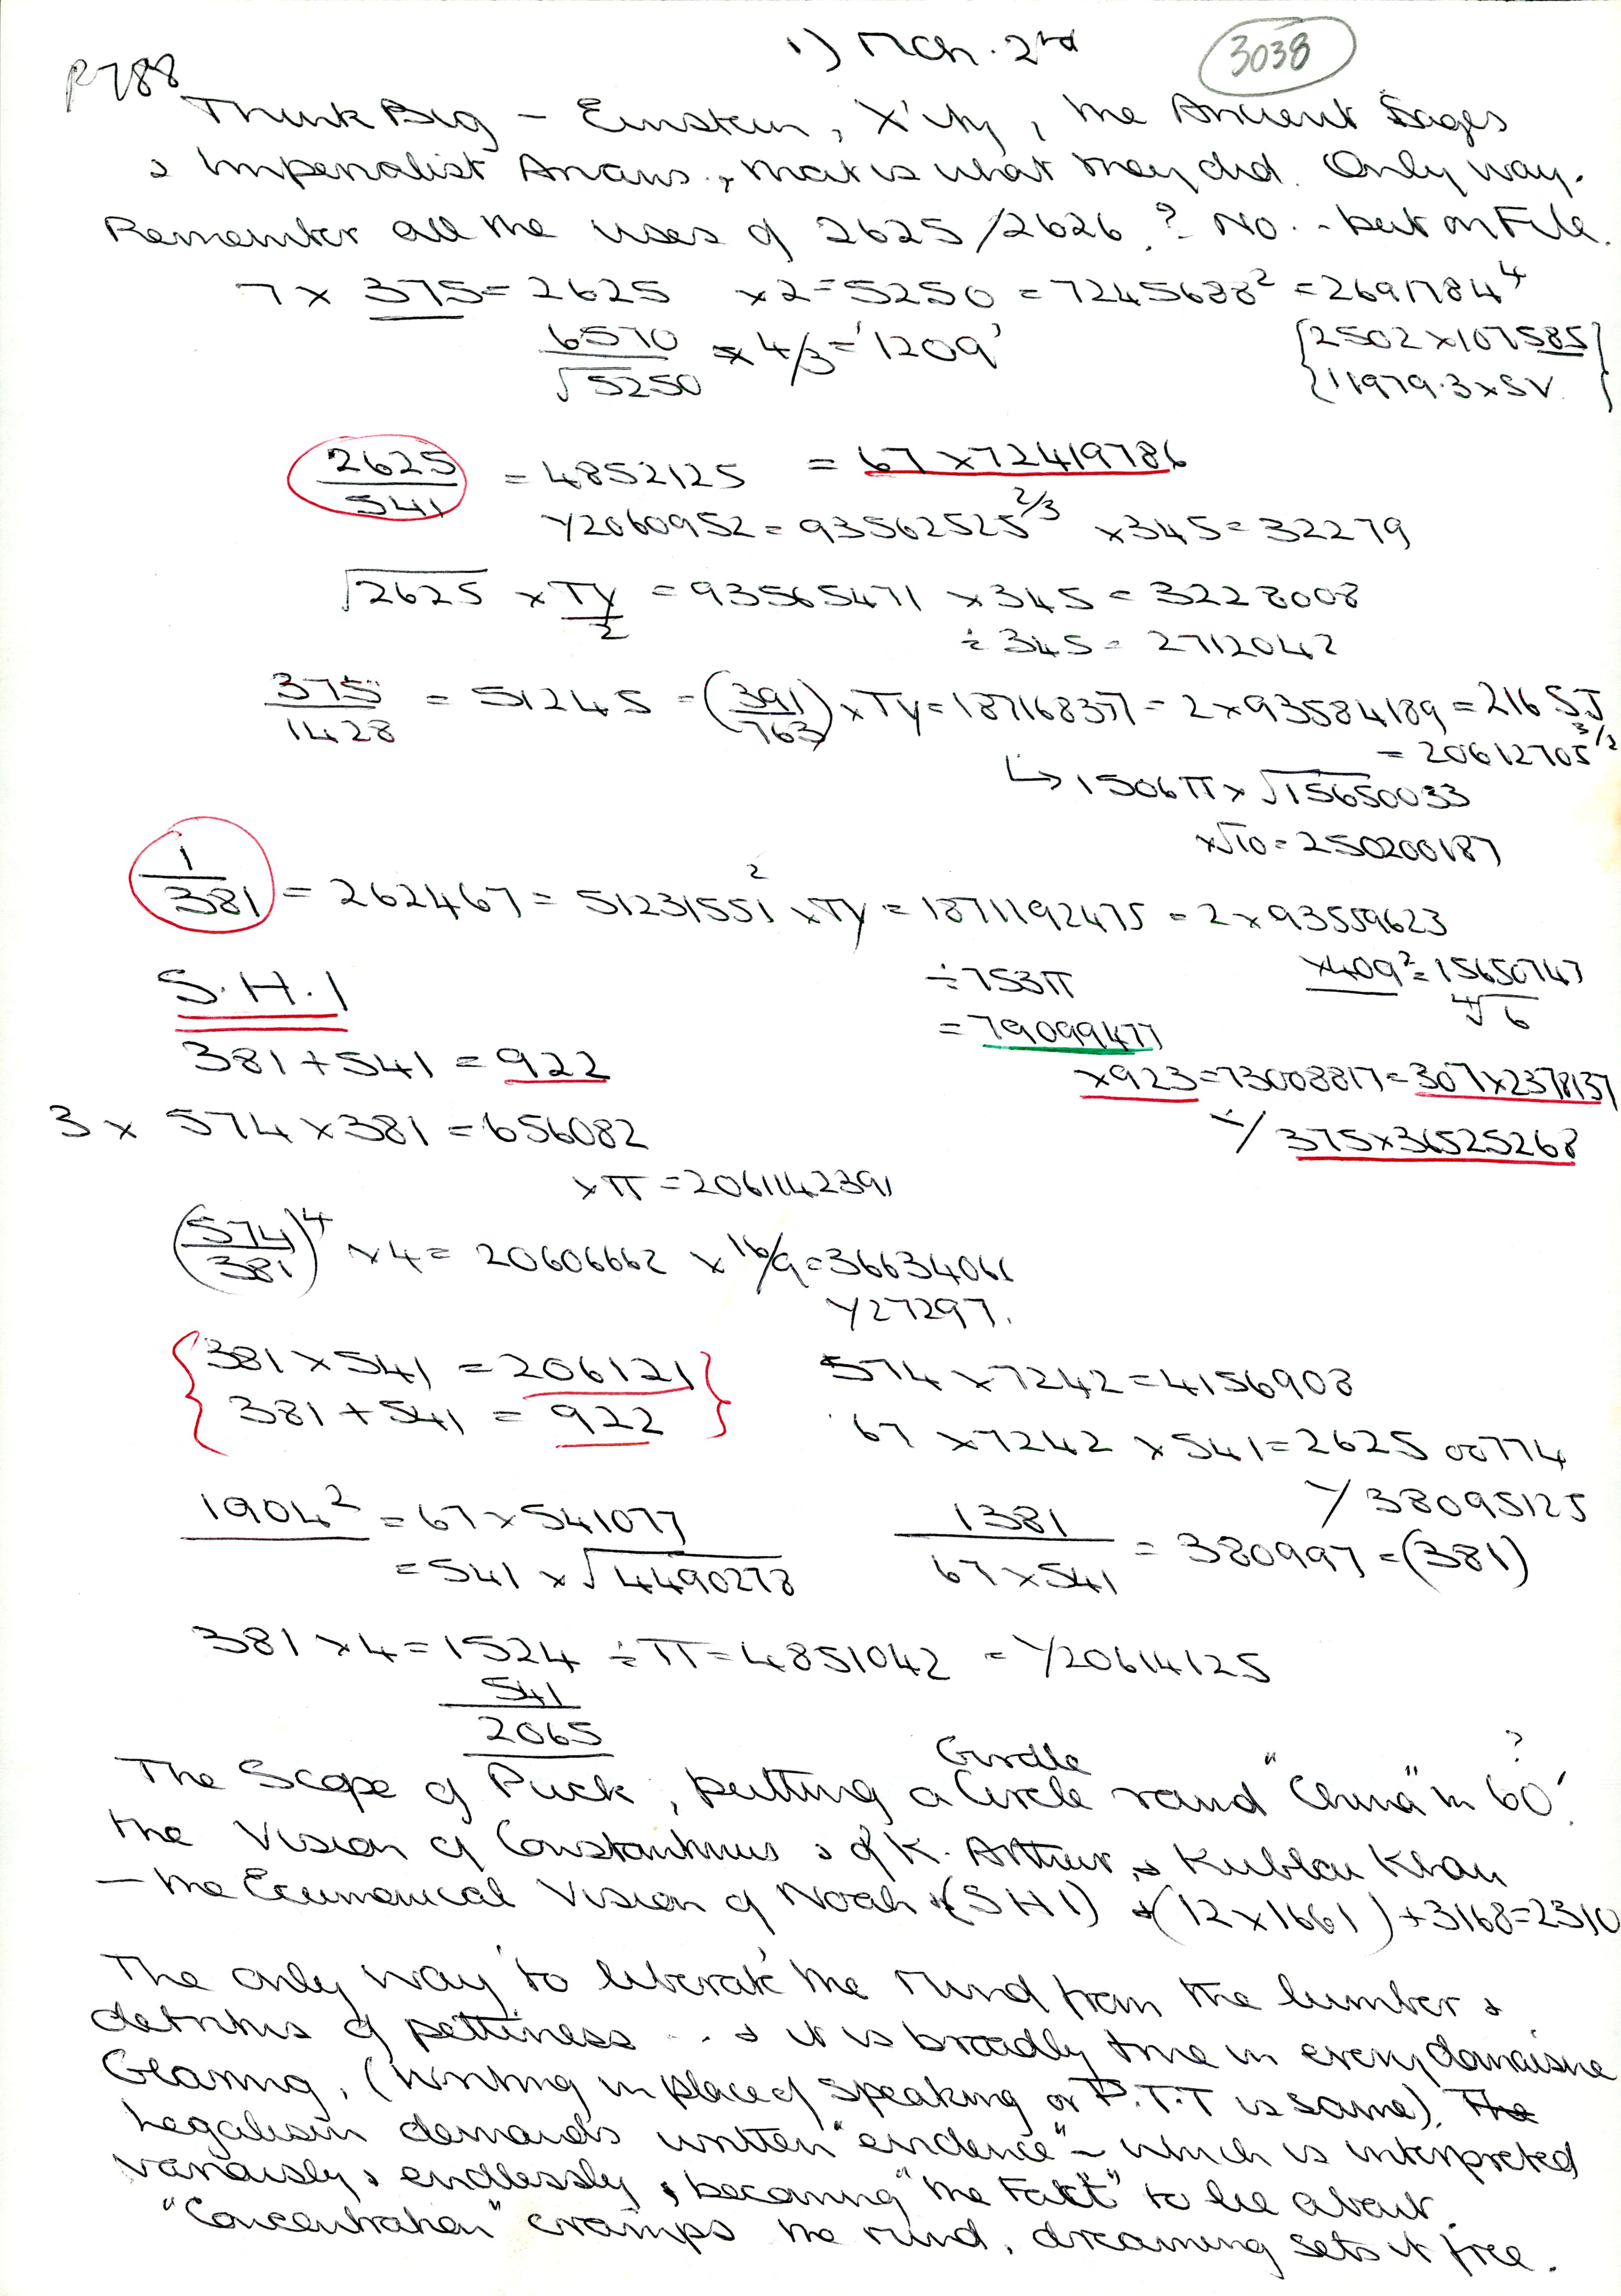 1) Mch. 2nd
3038
P788
Think Big – Einstein, X'ity, the Ancient Sages
& Imperialist Arians, that is what they did. Only way.
Remember all the uses of 2625/2626? No. - but on File.
7 x 375 = 2625 x2 = 5250 = 7245688² = 2691784⁴
6570/√5250 x 4/3 = '1209'
{2502 x 107585}
{11979.3 x SV}
2625/541 = 4852125 = 67 x 72419786
Y2060952 = 93562525^2/3 x 345 = 32279
√2625 x Ty/2 = 93565471 x 345 = 3228008
÷ 345 = 2712042
375/1428 = 51245 = (391/763) x Ty = 187168377 = 2 x 93584189 = 216 SJ
= 20612705^3/2
↳ 1506π x √15650033
x√10 = 250200187
1/381 = 262467 = 51231551² x Ty = 1871192475 = 2 x 93559623
÷ 753π
x409² = 15650747
∜6
= 79099477
S.H.1
381 + 541 = 922
x923 = 73008817 = 307 x 2378137
3 x 574 x 381 = 656082
Y 375 x 36525268
x π = 2061142391
(574/381)⁴ x 4 = 20606662 x 16/9 = 36634066
Y27297.
{381 x 541 = 206121}
{381 + 541 = 922}
574 x 7242 = 4156908
67 x 7242 x 541 = 262500774
Y 38095125
1904² = 67 x 541077
= 541 x √4490278
1381/67 x 541 = 380997 = (381)
381 x 4 = 1524 ÷ π = 4851042 = Y20614125
541
2065
Girdle
The Scope of Puck, putting a Circle round "China" in 60'?
the Vision of Constantinus & of K. Arthur, & Kublai Khan
– the Ecumenical Vision of Noah (SH1) + (12 x 1661) + 3168 = 2310
The only way to liberate the mind from the lumber &
detritus of pettiness .. & it is broadly true in every domaine
Gearing, (Writing in place of speaking or P.T.T is same). The
Legalism demands written "evidence" - which is interpreted
variously & endlessly, becoming "the Fact" to lie about.
"Concentration" cramps the mind, dreaming sets it free.